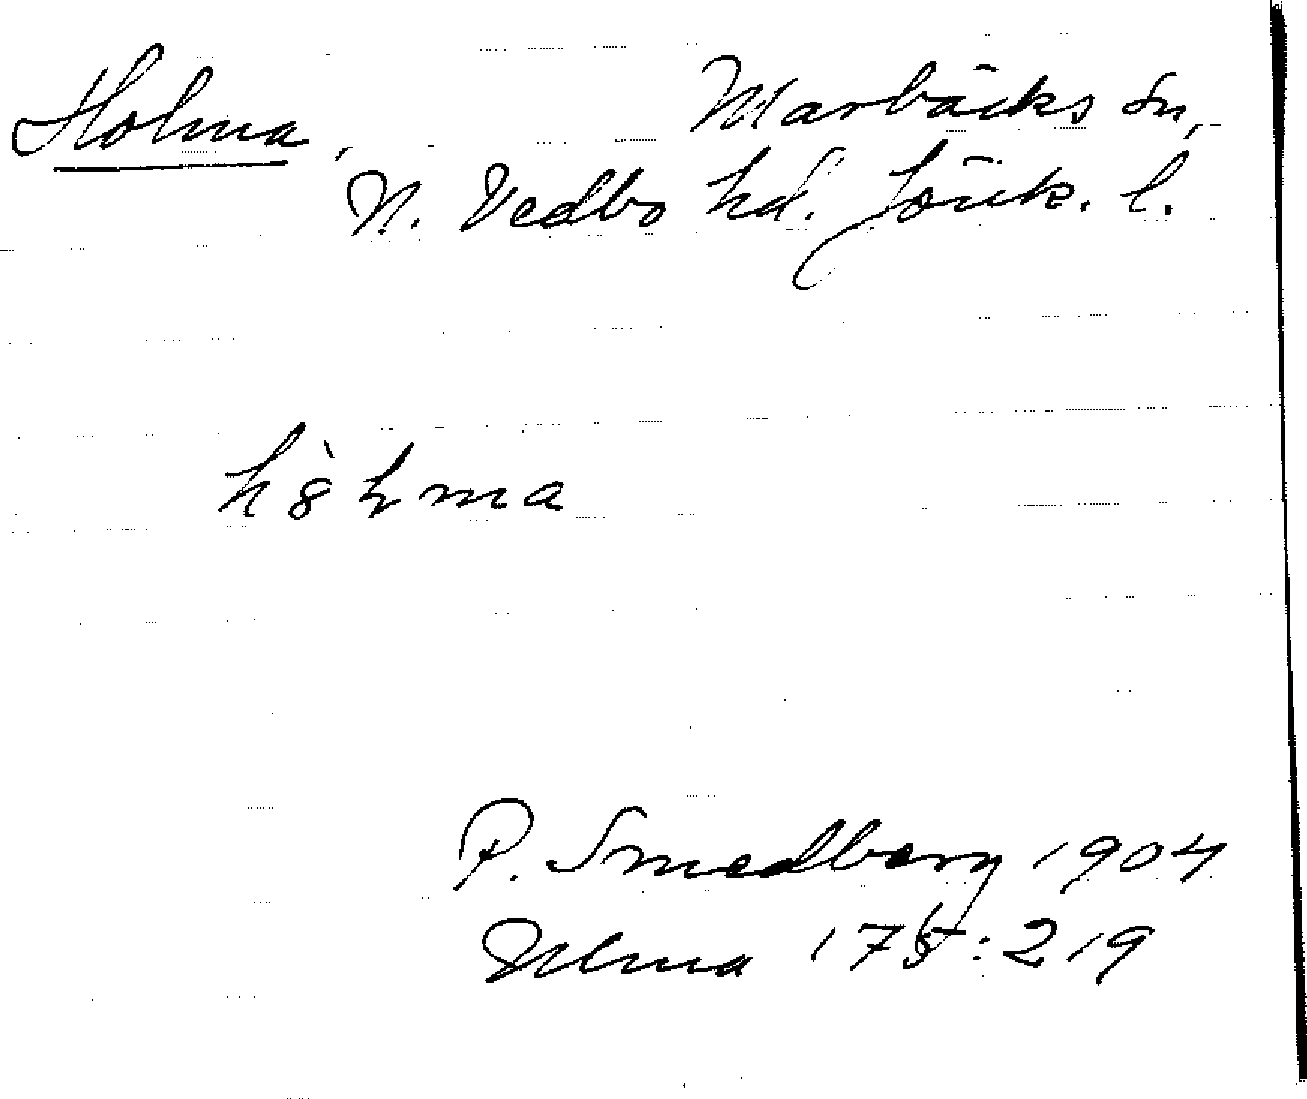 Holma, Marbäcks sn,
N. Vedbo hd. Jönk. l.
h8̀łma
P. Smedberg 1904
Ulma 175:219